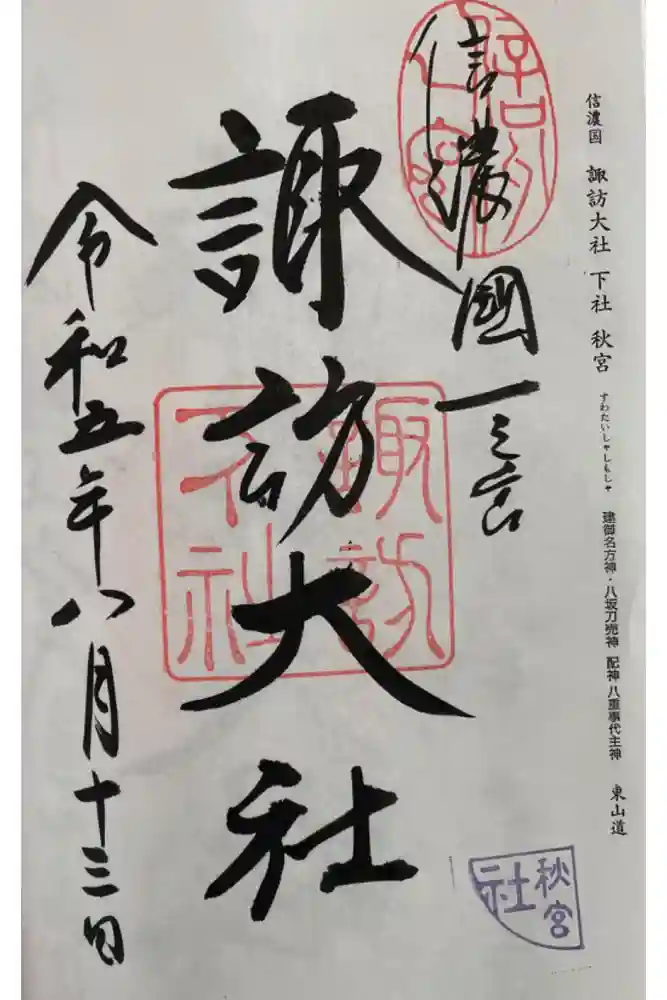 信濃国 諏訪大社 下社 秋宮 すわたいしゃしもしゃ 建御名方神・八坂刀売神 配神 八重事代主神 東山道
信濃國一之宮
諏訪大社
令和五年八月十三日
諏訪
下社
秋宮
社